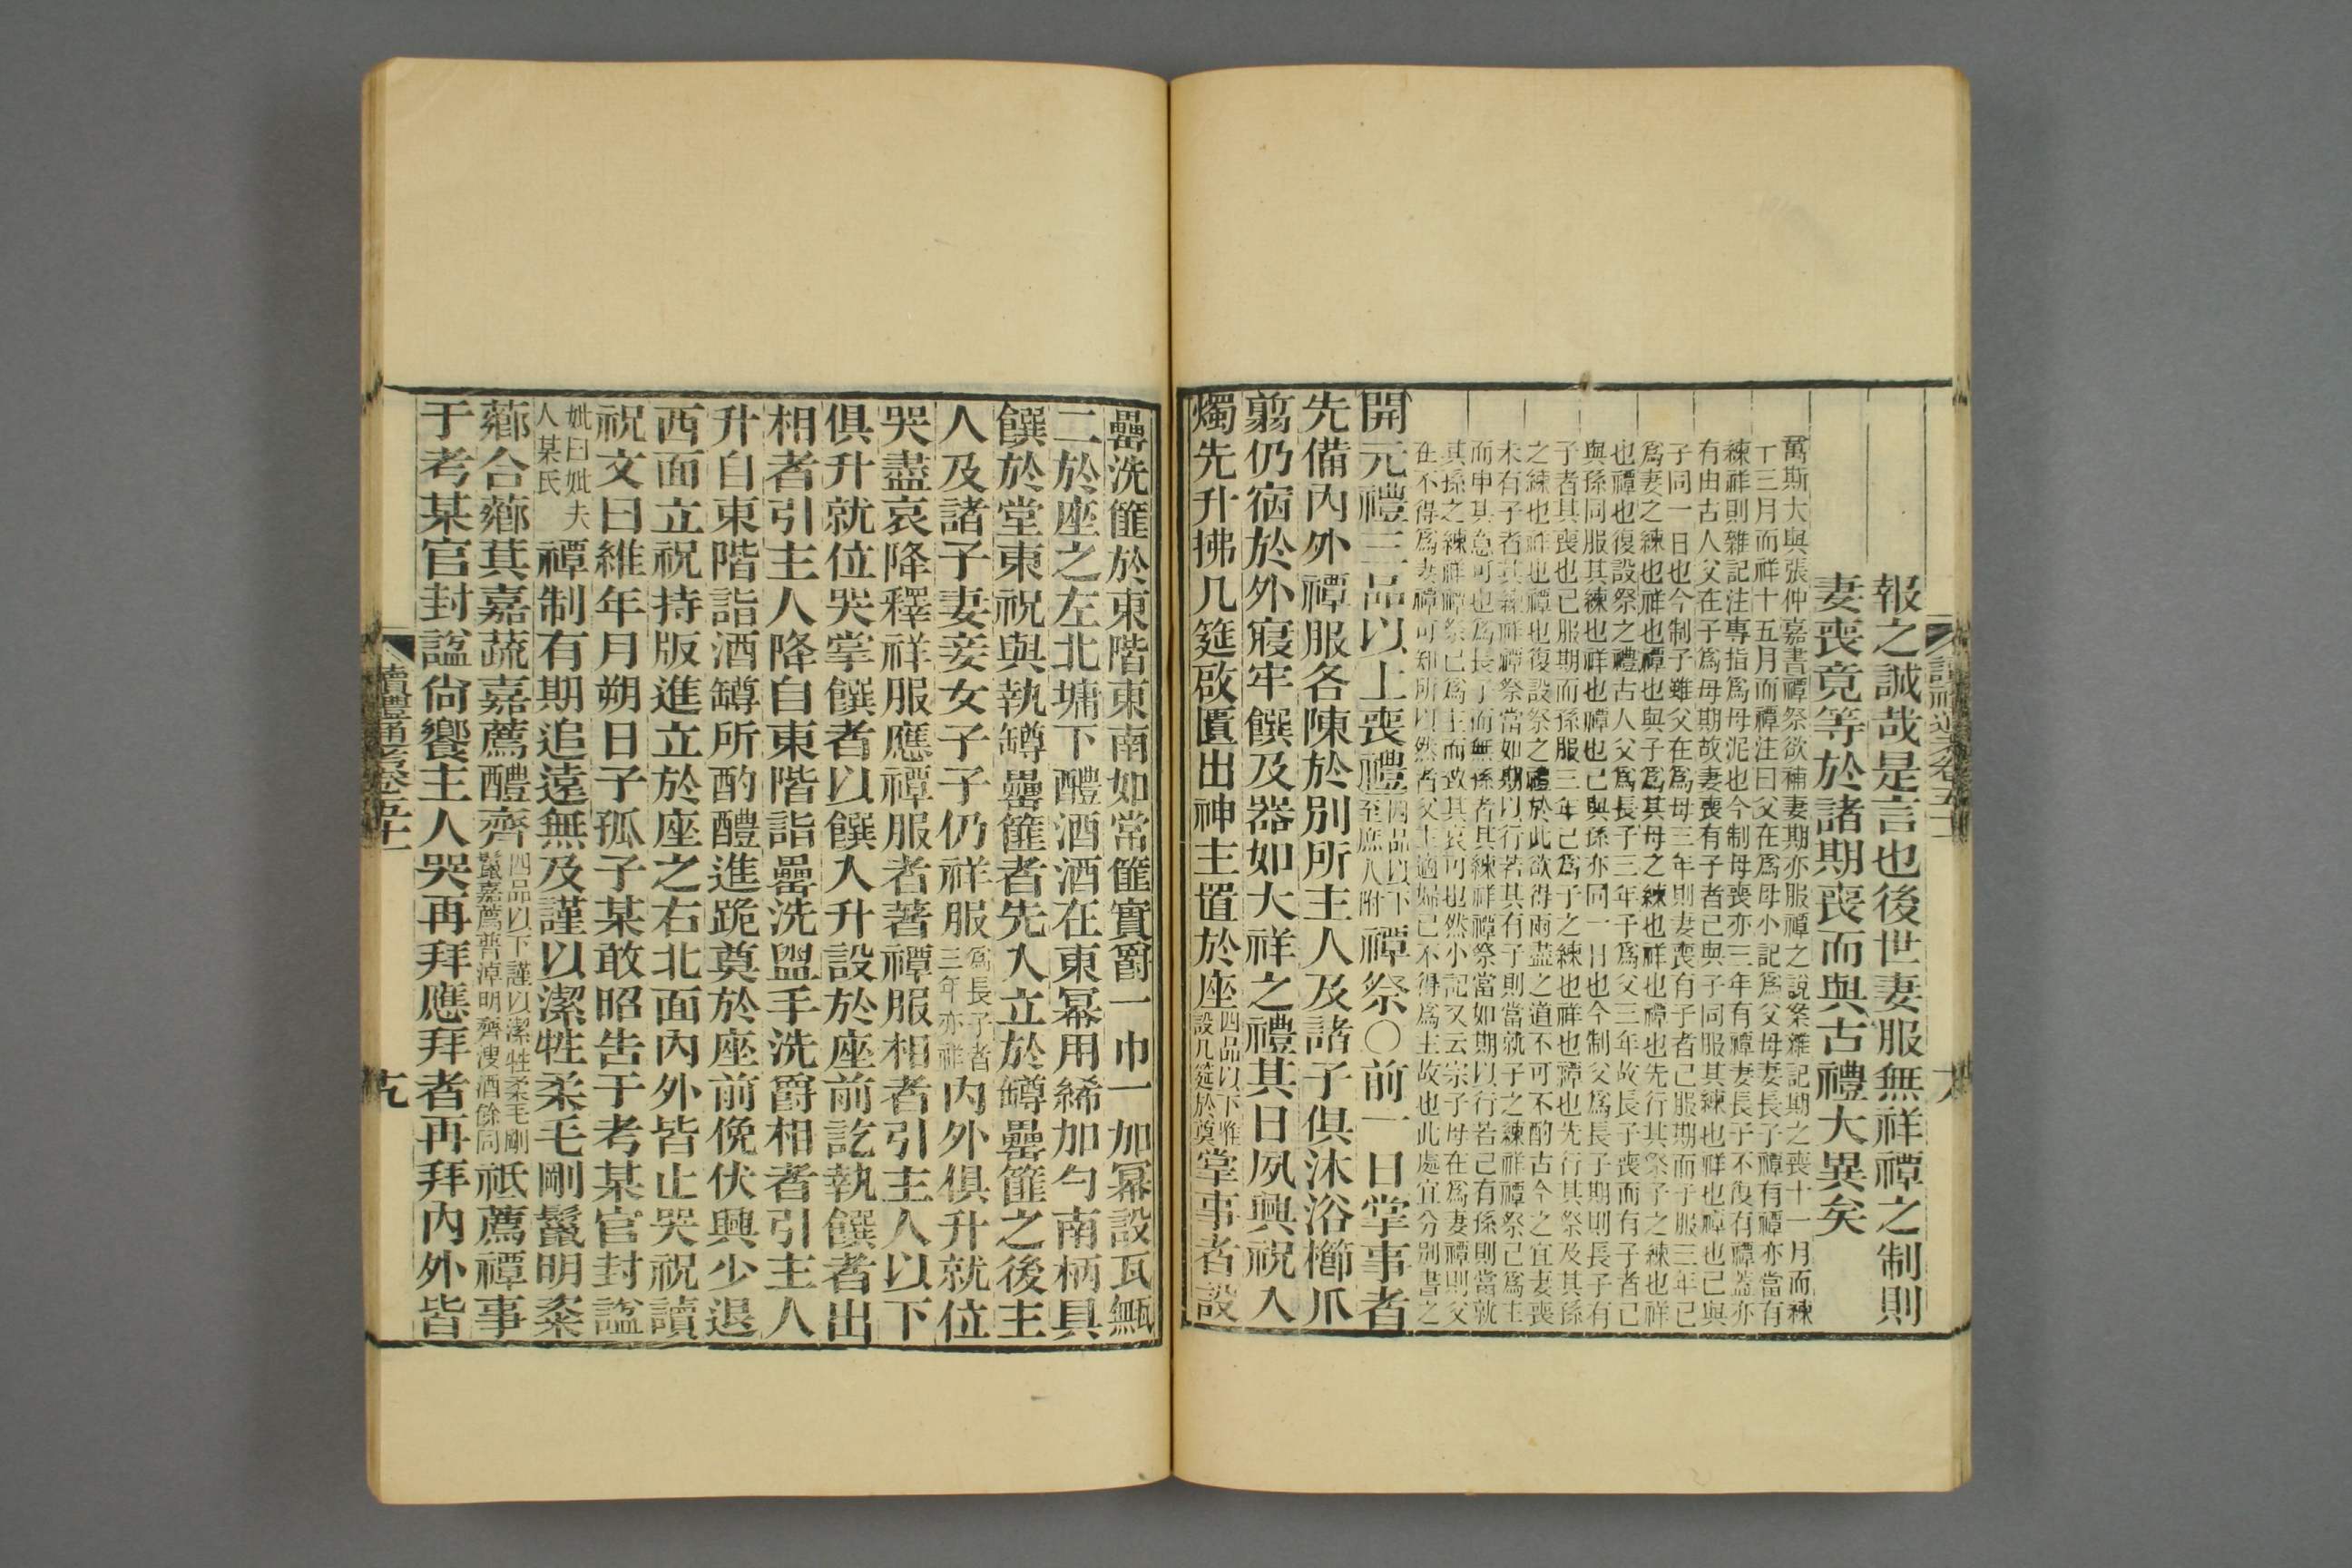 報之誠哉是言也後世妻服無祥禫之制則
妻喪竟等於諸期喪而與古禮大異矣
萬斯大與張仲嘉書禫祭欲補妻期亦服禫之說案雜記期之喪十一月而練
十三月而祥十五月而禫注曰父在爲母小記爲父母妻長子禫有禫亦當有
練祥則雜記注專指爲母泥也今制母喪亦三年有禫妻長子不復有禫蓋亦
有由古人父在子爲母期故妻喪有子者已與子同服其練也祥也禫也已與
子同一日也今制子雖父在爲母三年則妻喪有子者已服期而子服三年已
爲妻之練也祥也禫也與子爲其母之練也祥也禫也先行其祭子之練也祥
也禫也復設祭之禮古人父爲長子三年子爲父三年故長子喪而有子者已
與孫同服其練也祥也禫也已與孫亦同一日也今制父爲長子期則長子有
子者其喪也已服期而孫服三年已爲子之練也祥也禫也先行其祭及其孫
之練也祥也禫也復設祭之禮於此欲得兩盡之道不可不酌古今之宜妻喪
未有子者其練祥禫祭當如期以行若其有子則當就子之練祥禫祭已爲主
而申其意可也爲長子而無孫者其練祥禫祭當如期以行若已有孫則當就
其孫之練祥禫祭已爲主而致其哀可也然小記又云宗子母在爲妻禫則父
在不得爲妻禫可知所以然者父主適婦已不得爲主故也此處宜分別書之
開元禮三品以上喪禮四品以下至庶人附禫祭〇前一日掌事者
先備內外禫服各陳於別所主人及諸子俱沐浴櫛爪
翦仍宿於外寢牢饌及器如大祥之禮其日夙興祝入
燭先升拂几筵啟匱出神主置於座四品以下惟設几筵於奠掌事者設
罍洗篚於東階東南如常篚實爵一巾一加冪設瓦甒
二於座之左北墉下醴酒酒在東冪用綌加勺南柄具
饌於堂東祝與執罇罍篚者先入立於罇罍篚之後主
人及諸子妻妾女子子仍祥服爲長子者三年亦祥內外俱升就位
哭盡哀降釋祥服應禫服者著禫服相者引主人以下
俱升就位哭掌饌者以饌入升設於座前訖執饌者出
相者引主人降自東階詣罍洗盥手洗爵相者引主人
升自東階詣酒罇所酌醴進跪奠於座前俛伏興少退
西面立祝持版進立於座之右北面內外皆止哭祝讀
祝文曰維年月朔日子孤子某敢昭告于考某官封諡
妣曰妣夫人某氏禫制有期追遠無及謹以潔牲柔毛剛鬣明粢
薌合薌萁嘉蔬嘉薦醴齊四品以下謹以潔牲柔毛剛鬣嘉薦普淖明齊溲酒餘同祗薦禫事
于考某官封諡尙饗主人哭再拜應拜者再拜內外皆
讀禮通考卷五十二